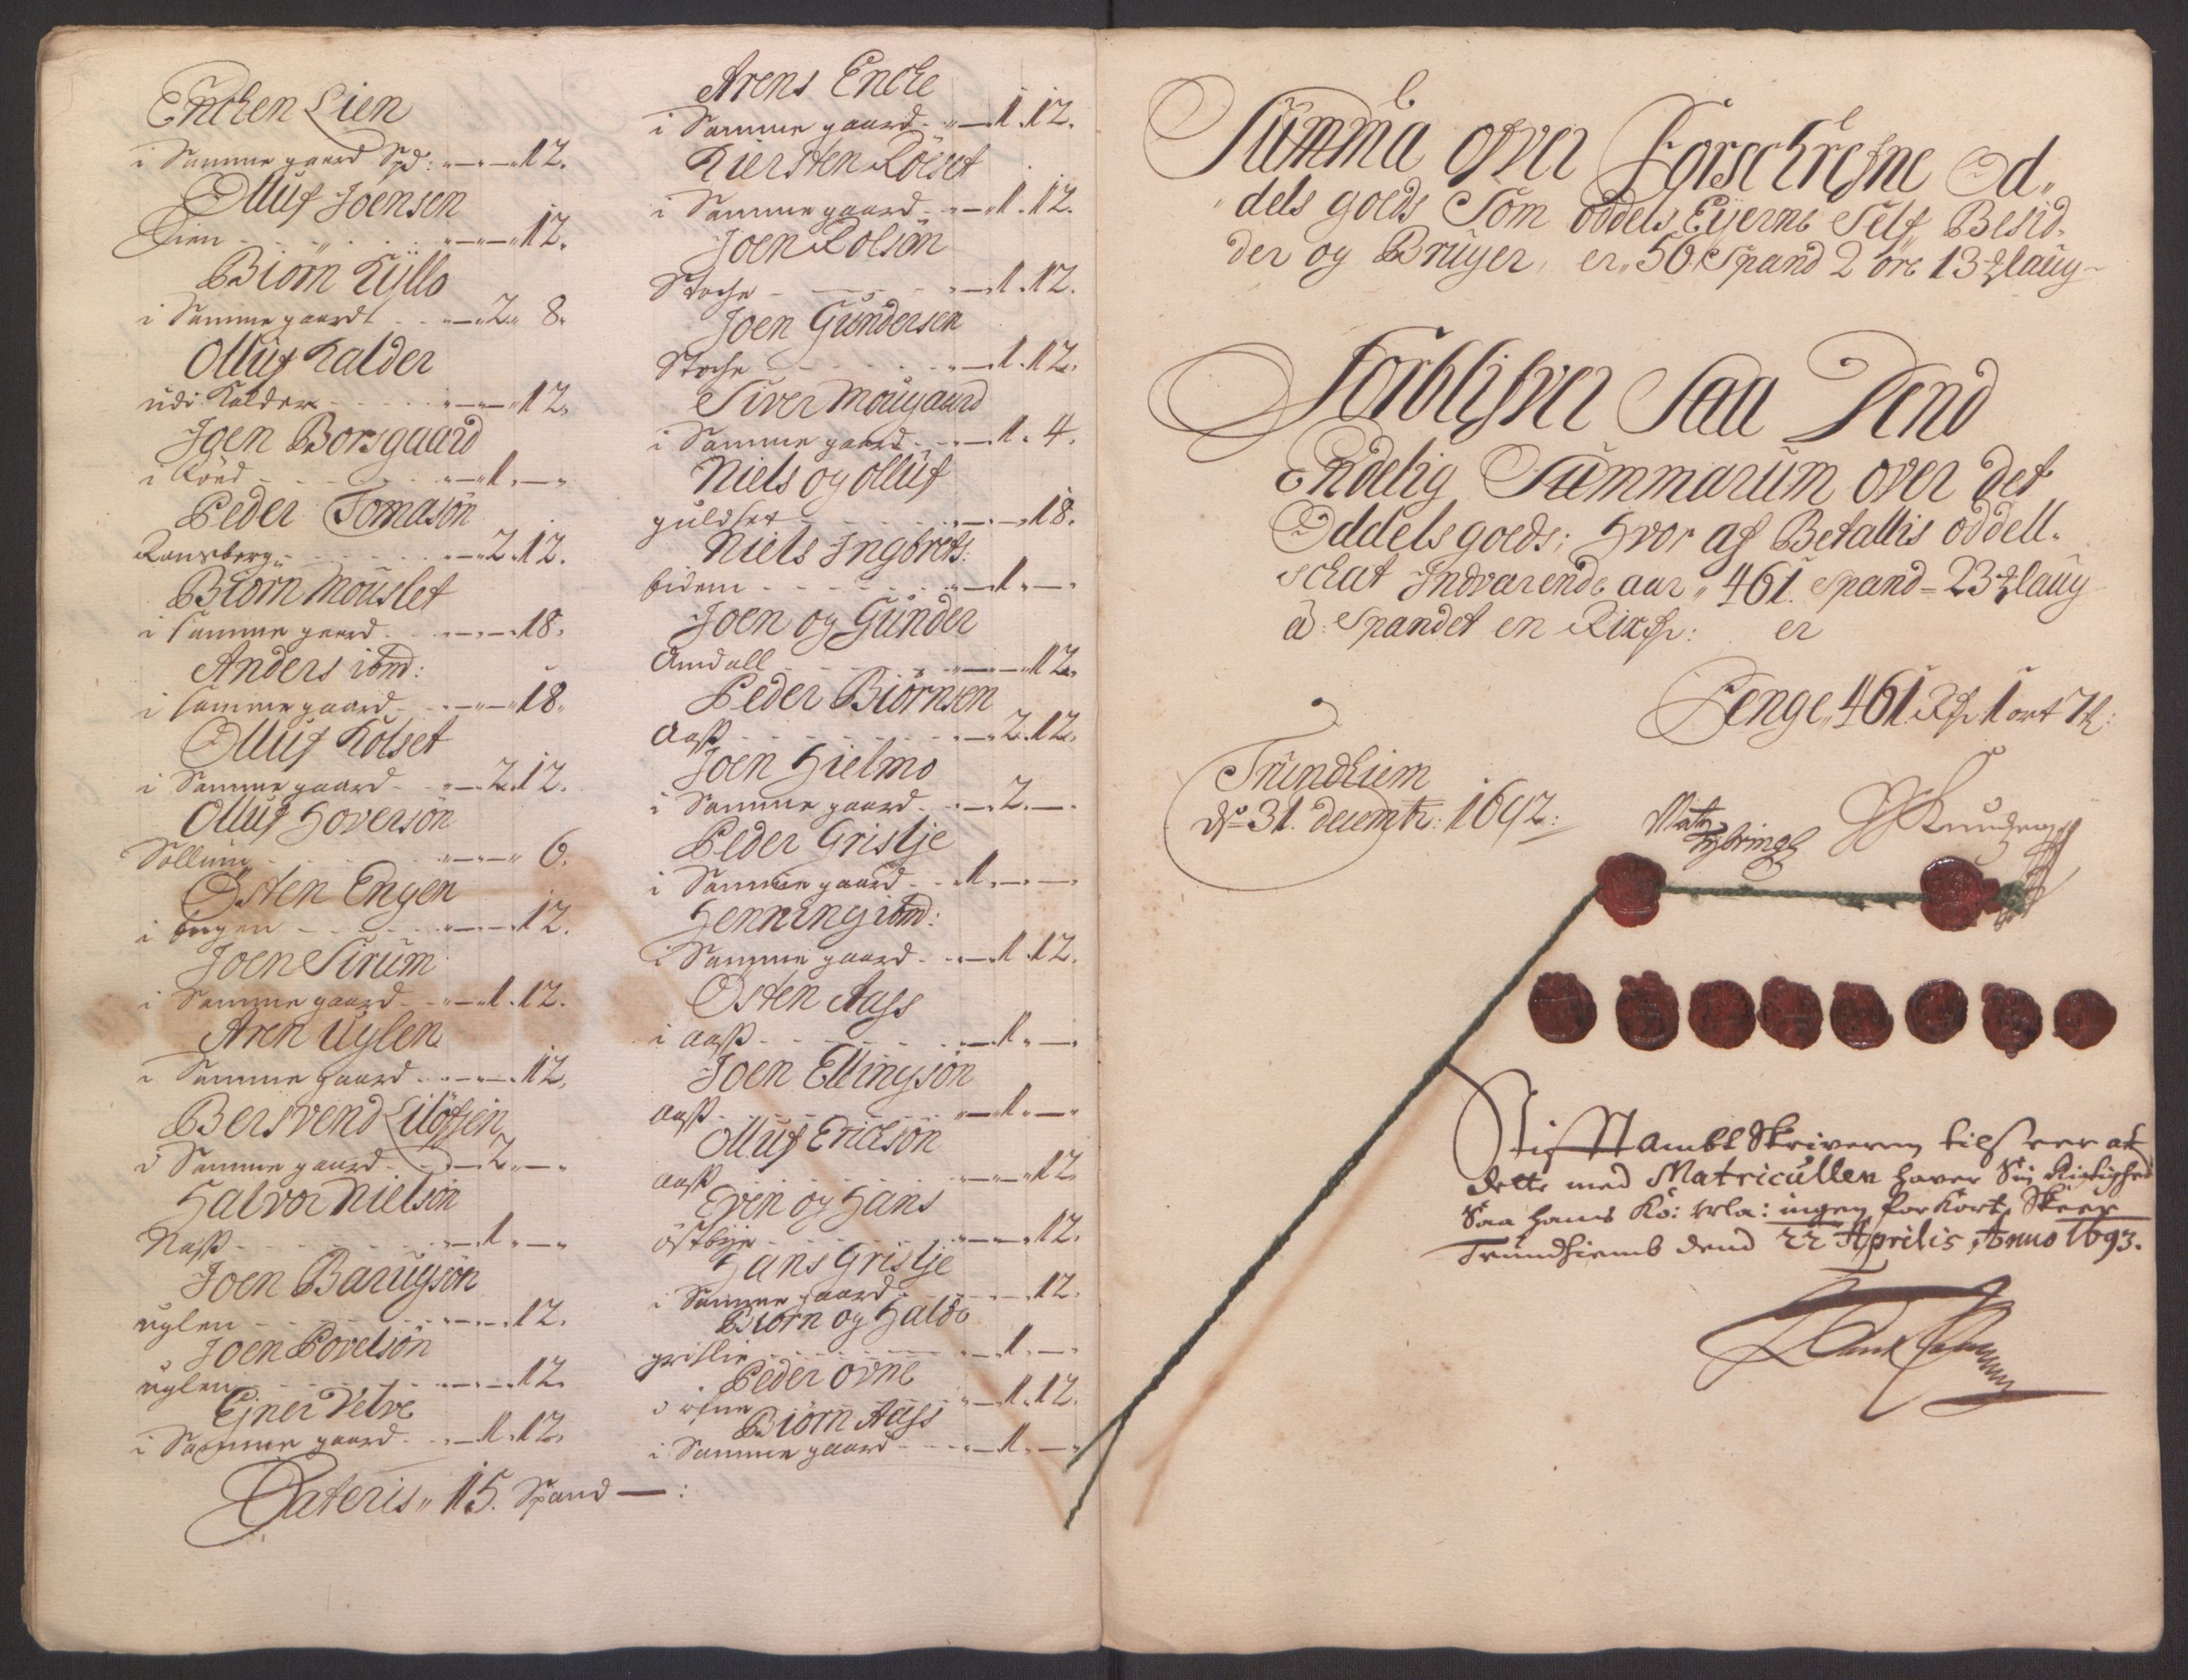 Enchen Lien
i Samme gaard Spd: 12.
Olluf Joensen
Lien 12.
Biørn Kyllo
i Samme gaardt 2. 8.
Olluf Kalder
udi Kalder 12.
Joen Borsgaard
i 1. —
Peder Tomasøn
Ronsberg 2. 12.
Biørn Mouslet
i samme gaard 18.
Anders ibmd:
i samme gaard 18.
Olluf Kolset
i Samme gaard 2. 12.
Olluf Hoversøn
Sollium 6.
Østen Engen
i Engen 12.
Joen Sirum
i Samme gaard 1. 12.
Aren Uglen
i Samme gaard 12.
Bersvend Liløfsen
i Samme gaard 2. —
Halvor Nielsøn
Nass 1. —
Joen Barugsøn
uglen 12.
Joen Povelsøn
uglen 12.
Ejner Velve
i Samme gaard 1. 12.
Lateris 15. Spand — :
Arens Encke
i Samme gaard 1. 12.
Kiersten Rølset
i Samme gaard 1. 12.
Joen Rolsøn
Stoche 1. 12.
Joen Gundersen
Stoche 1. 12.
Siver Mougaard
i Samme gaard 1. 4.
Niels og Olluf
guldset 18.
Niels Ingbrets:
bidem 1. —
Joen og Gunder
Amdall 12.
Peder Biørnsen
Aass 2. 12.
Joen Hielmo
i Samme gaard 2. —
Peder Grislje
i Samme gaard 1. —
Henning ibmd:
i Samme gaard 1. 12.
Østen Aass
i aass 1. —
Joen Ellingsøn
aass 1. —
Olluf Ericksøn
aass 12
Even og Hans
østbye 12.
Hans Grislje
i Samme gaard 12.
Biørn og Haldo
grislie 1. —
Peder Ovne
i ofne 1. 12.
Biørn Aass
i Samme gaard 1. —
Summa ofver Forschrefne Od„
„dels goeds Som oddels Eyerne Self Besid„
der og Bruger, er„ 56. Spand 2 øre 13 ⅔ laug
Forblifver Saa Dend
Endelig Summarum over det
Oddels goeds; Hvor af Betallis oddell„
schat Indvarende aar„ 461. Spand = 23 ⅔ laug
a: Spandet en Rixdr: er
Penge„ 461. Rdr 1 ort 7 s:
Trundhiem
ds 31. decembr: 1692:
Stifft Ambt Skriveren tilseer at
dette med Matricullen haver Sin Rigtighed
Saa hans Ko: Ma: ingen forkort Skeer
Trundhiemb dend 22 Aprilis, Anno 1693.